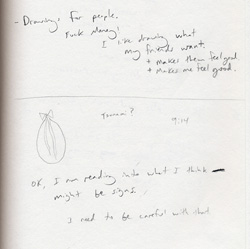 - Drawings for people.
Fuck Money!
I like drawing what
my friends want.
+ makes them feel good.
+ makes me feel good.
9:14
OK, I am reading into what I think
might be signs.
I need to be careful with that